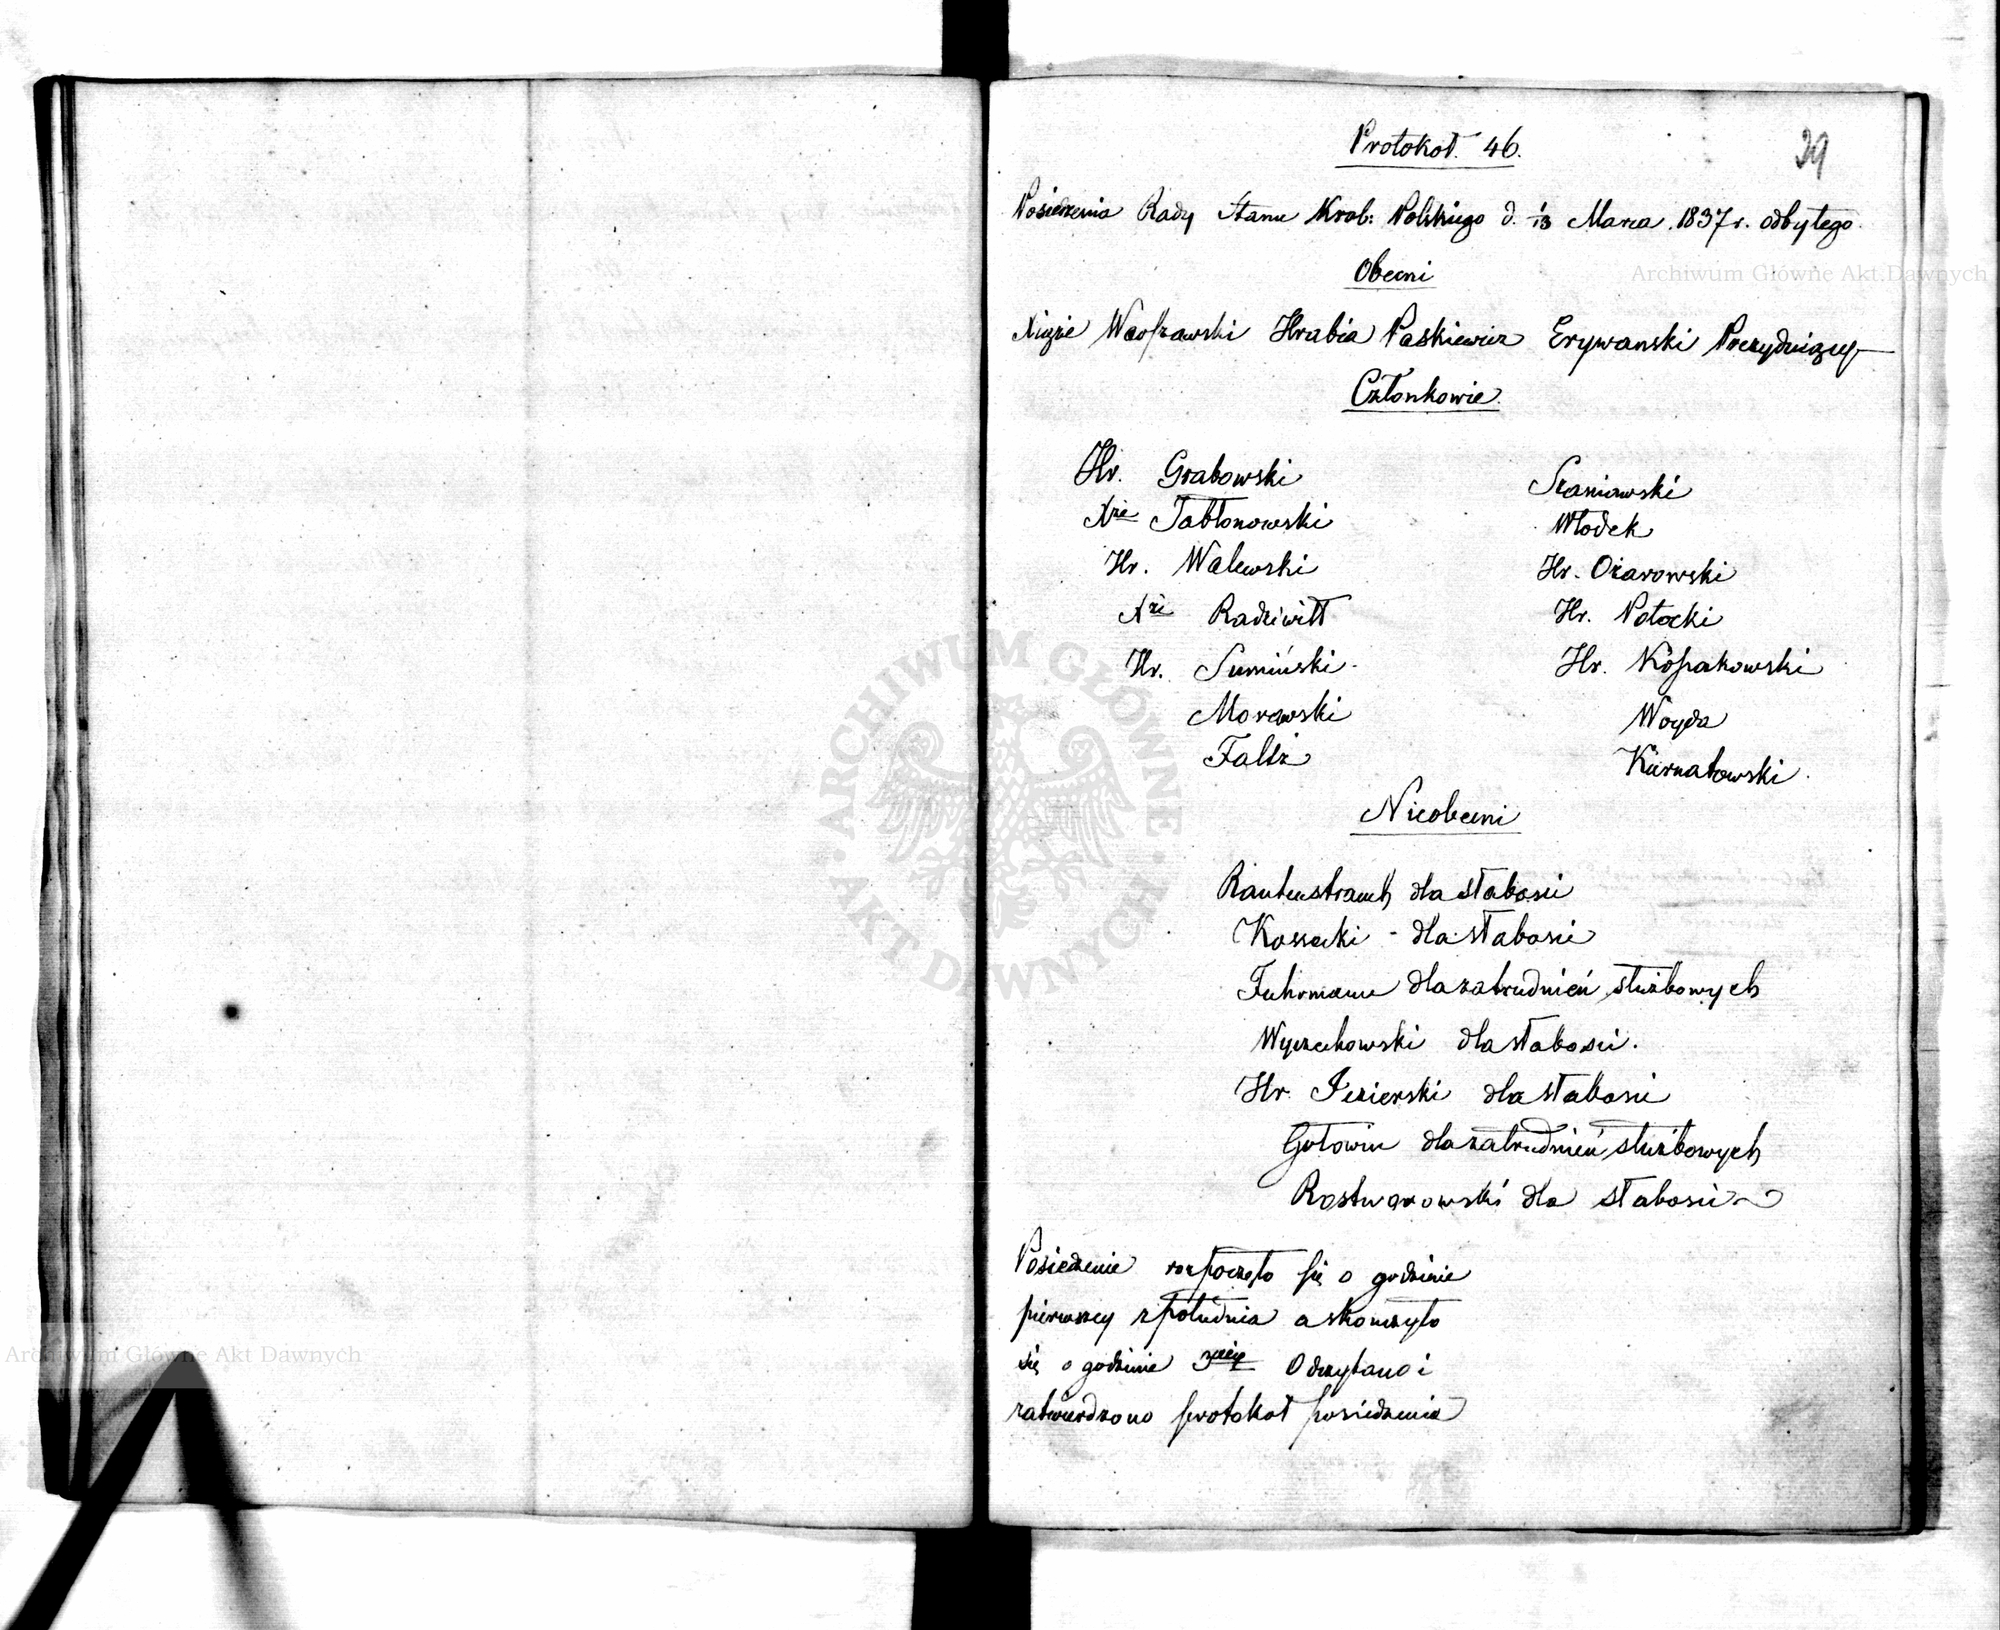 Protokoł. 46.
39
Posiedzenia Rady Stanu Król: Polskiego d. 1/13 Marca 1837 r. odbytego
Obecni
Xiąże Warszawski Hrabia Paskiewicz Erywanski Prezydujący
Członkowie.
Hr. Grabowski
Xże Jabłonowski
Hr. Walewski
Xże Radziwiłł
Hr. Sumiński
Morawski
Faltz
Szaniawski
Włodek
Hr. Ożarowski
Hr. Potocki
Hr. Kossakowski
Woyda
Kurnatowski.
Nieobecni
Rautenstrauch dla słabości
Kossecki - dla słabości
Fuhrmann dla zatrudnień służbowych
Wyczechowski dla słabości.
Hr. Jezierski dla słabości
Gołowin dla zatrudnień służbowych
Rostworowski dla słabości
Posiedzenie rozpoczęło się o godzinie
pierwszey z południa a skonczyło
się o godzinie Odczytano i
zatwierdzono protokoł posiedzenia
Archiwum Główne Akt Dawnych
Archiwum Główne Akt Dawnych
ARCHIWUM GŁÓWNE AKT DAWNYCH